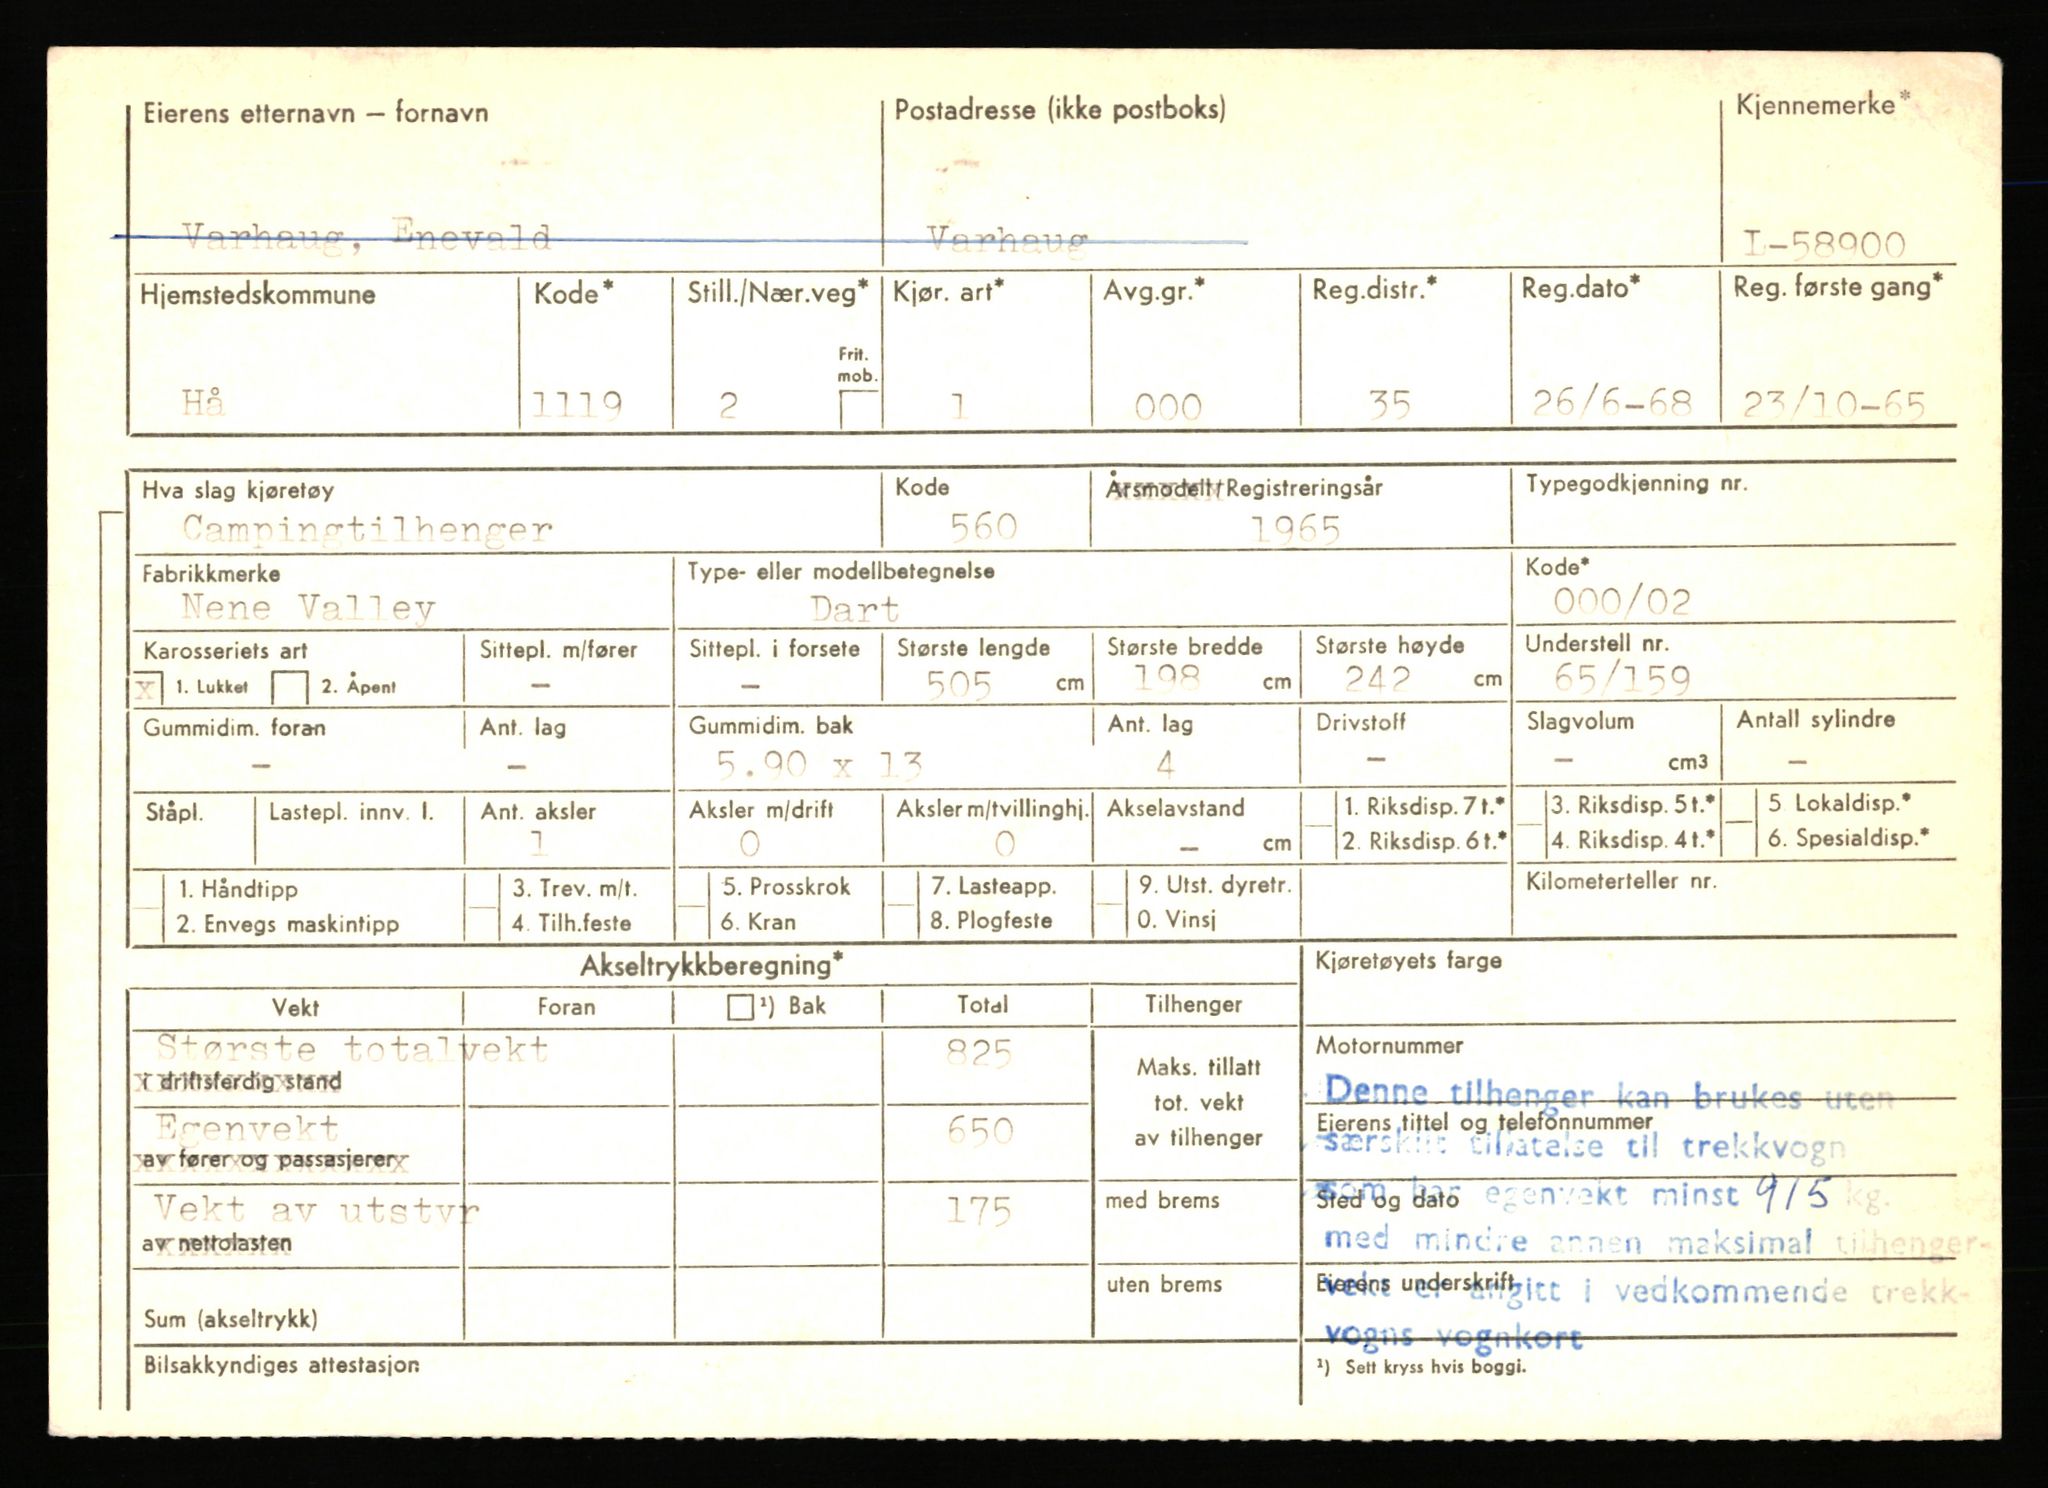 Eierens etternavn – fornavn Postadresse (ikke postboks) Kjennemerke*
Varhaug, Enevald Varhaug L-58900
Hjemstedskommune Kode* Still./Nær.veg* Kjør. art* Avg.gr.* Reg.distr.* Reg.dato* Reg. første gang*
Frit.
mob.
Hå 1119 2 1 000 35 26/6-68 23/10-65
Hva slag kjøretøy Kode Årsmodell/Registreringsår Typegodkjenning nr.
Campingtilhenger 560 1965
Fabrikkmerke Type- eller modellbetegnelse Kode*
Nene Valley Dart 000/02
Karosseriets art Sittepl. m/fører Sittepl. i forsete Største lengde Største bredde Største høyde Understell nr.
x 1. Lukket 2. Åpent – – 505 cm 198 cm 242 cm 65/159
Gummidim. foran Ant. lag Gummidim. bak Ant. lag Drivstoff Slagvolum Antall sylindre
– – 5.90 x 13 4 – – cm3 –
Ståpl. Lastepl. innv. l. Ant. aksler Aksler m/drift Aksler m/tvillinghj. Akselavstand 1. Riksdisp. 7 t.* 3. Riksdisp. 5 t.* 5 Lokaldisp.*
1 0 0 – cm 2. Riksdisp. 6 t.* 4. Riksdisp. 4 t.* 6. Spesialdisp.*
1. Håndtipp 3. Trev. m/t. 5. Prosskrok 7. Lasteapp. 9. Utst. dyretr. Kilometerteller nr.
2. Envegs maskintipp 4. Tilh.feste 6. Kran 8. Plogfeste 0. Vinsj
Akseltrykkberegning* Kjøretøyets farge
Vekt Foran ¹) Bak Total Tilhenger
Største totalvekt 825
i driftsferdig stand
Maks. tillatt
tot. vekt
av tilhenger
Motornummer
Denne tilhenger kan brukes uten
Egenvekt 650
av fører og passasjerer
Eierens tittel og telefonnummer
særskilt tillatelse til trekkvogn
Vekt av utstyr 175 med brems
av nettolasten
Sted og dato
som har egenvekt minst 915 kg.
med mindre annen maksimal tilhenger-
uten brems Eierens underskrift
vekt er angitt i vedkommende trekk-
Sum (akseltrykk)
vogns vognkort
Bilsakkyndiges attestasjon ¹) Sett kryss hvis boggi.